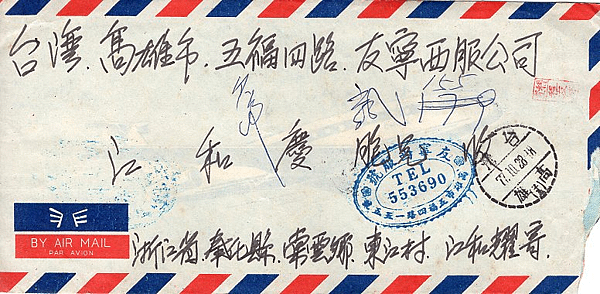 台灣.高雄市.五福四路.友寧西服公司
155
江和慶 收
TEL
553690
台
77.10.28.18
高雄
BY AIR MAIL
PAR AVION
浙江省.奉化縣.棠雲鄉.東江村.江和耀寄.